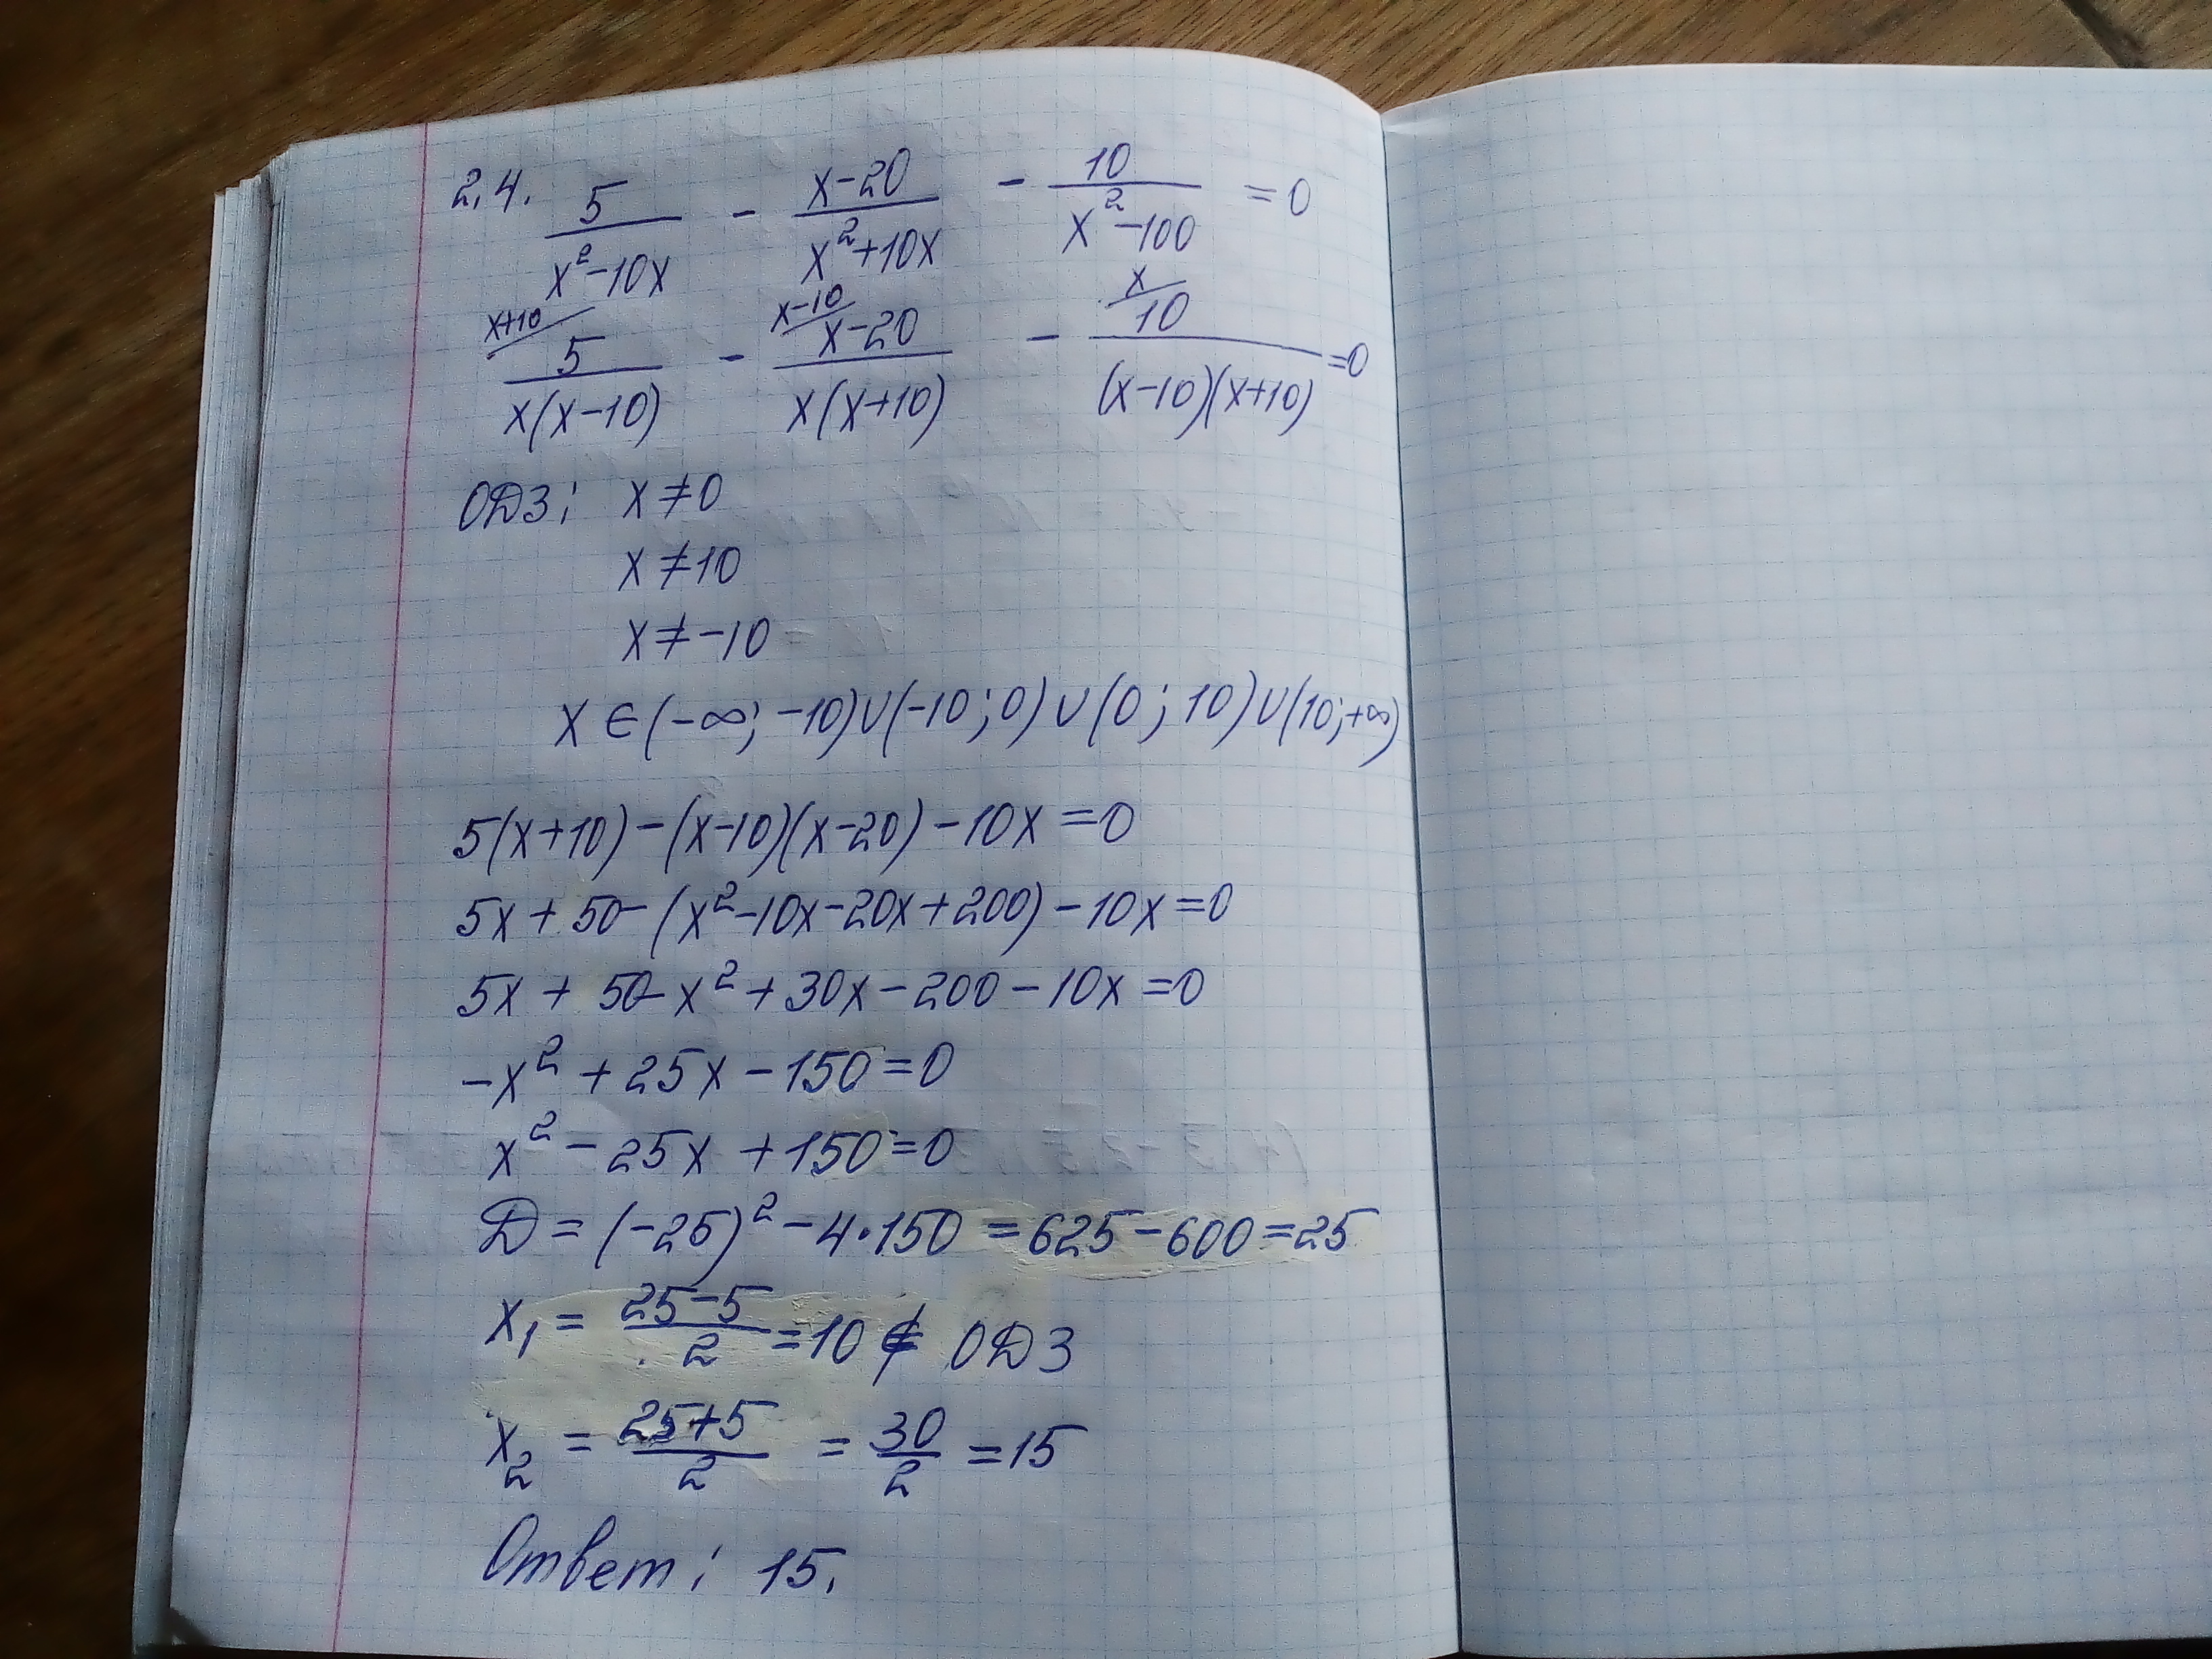 2.4. 5/(x²-10x) - (x-20)/(x²+10x) - 10/(x²-100) = 0
x+10/ 5/(x(x-10)) - x-10/ (x-20)/(x(x+10)) - x/ 10/((x-10)(x+10)) = 0
ОДЗ: x≠0
x≠10
x≠-10
x∈(-∞; -10)∪(-10; 0)∪(0; 10)∪(10; +∞)
5(x+10)-(x-10)(x-20)-10x=0
5x+50-(x²-10x-20x+200)-10x=0
5x+50-x²+30x-200-10x=0
-x²+25x-150=0
x²-25x+150=0
D=(-25)²-4·150=625-600=25
x₁=(25-5)/2=10∉ОДЗ
x₂=(25+5)/2=30/2=15
Ответ: 15.